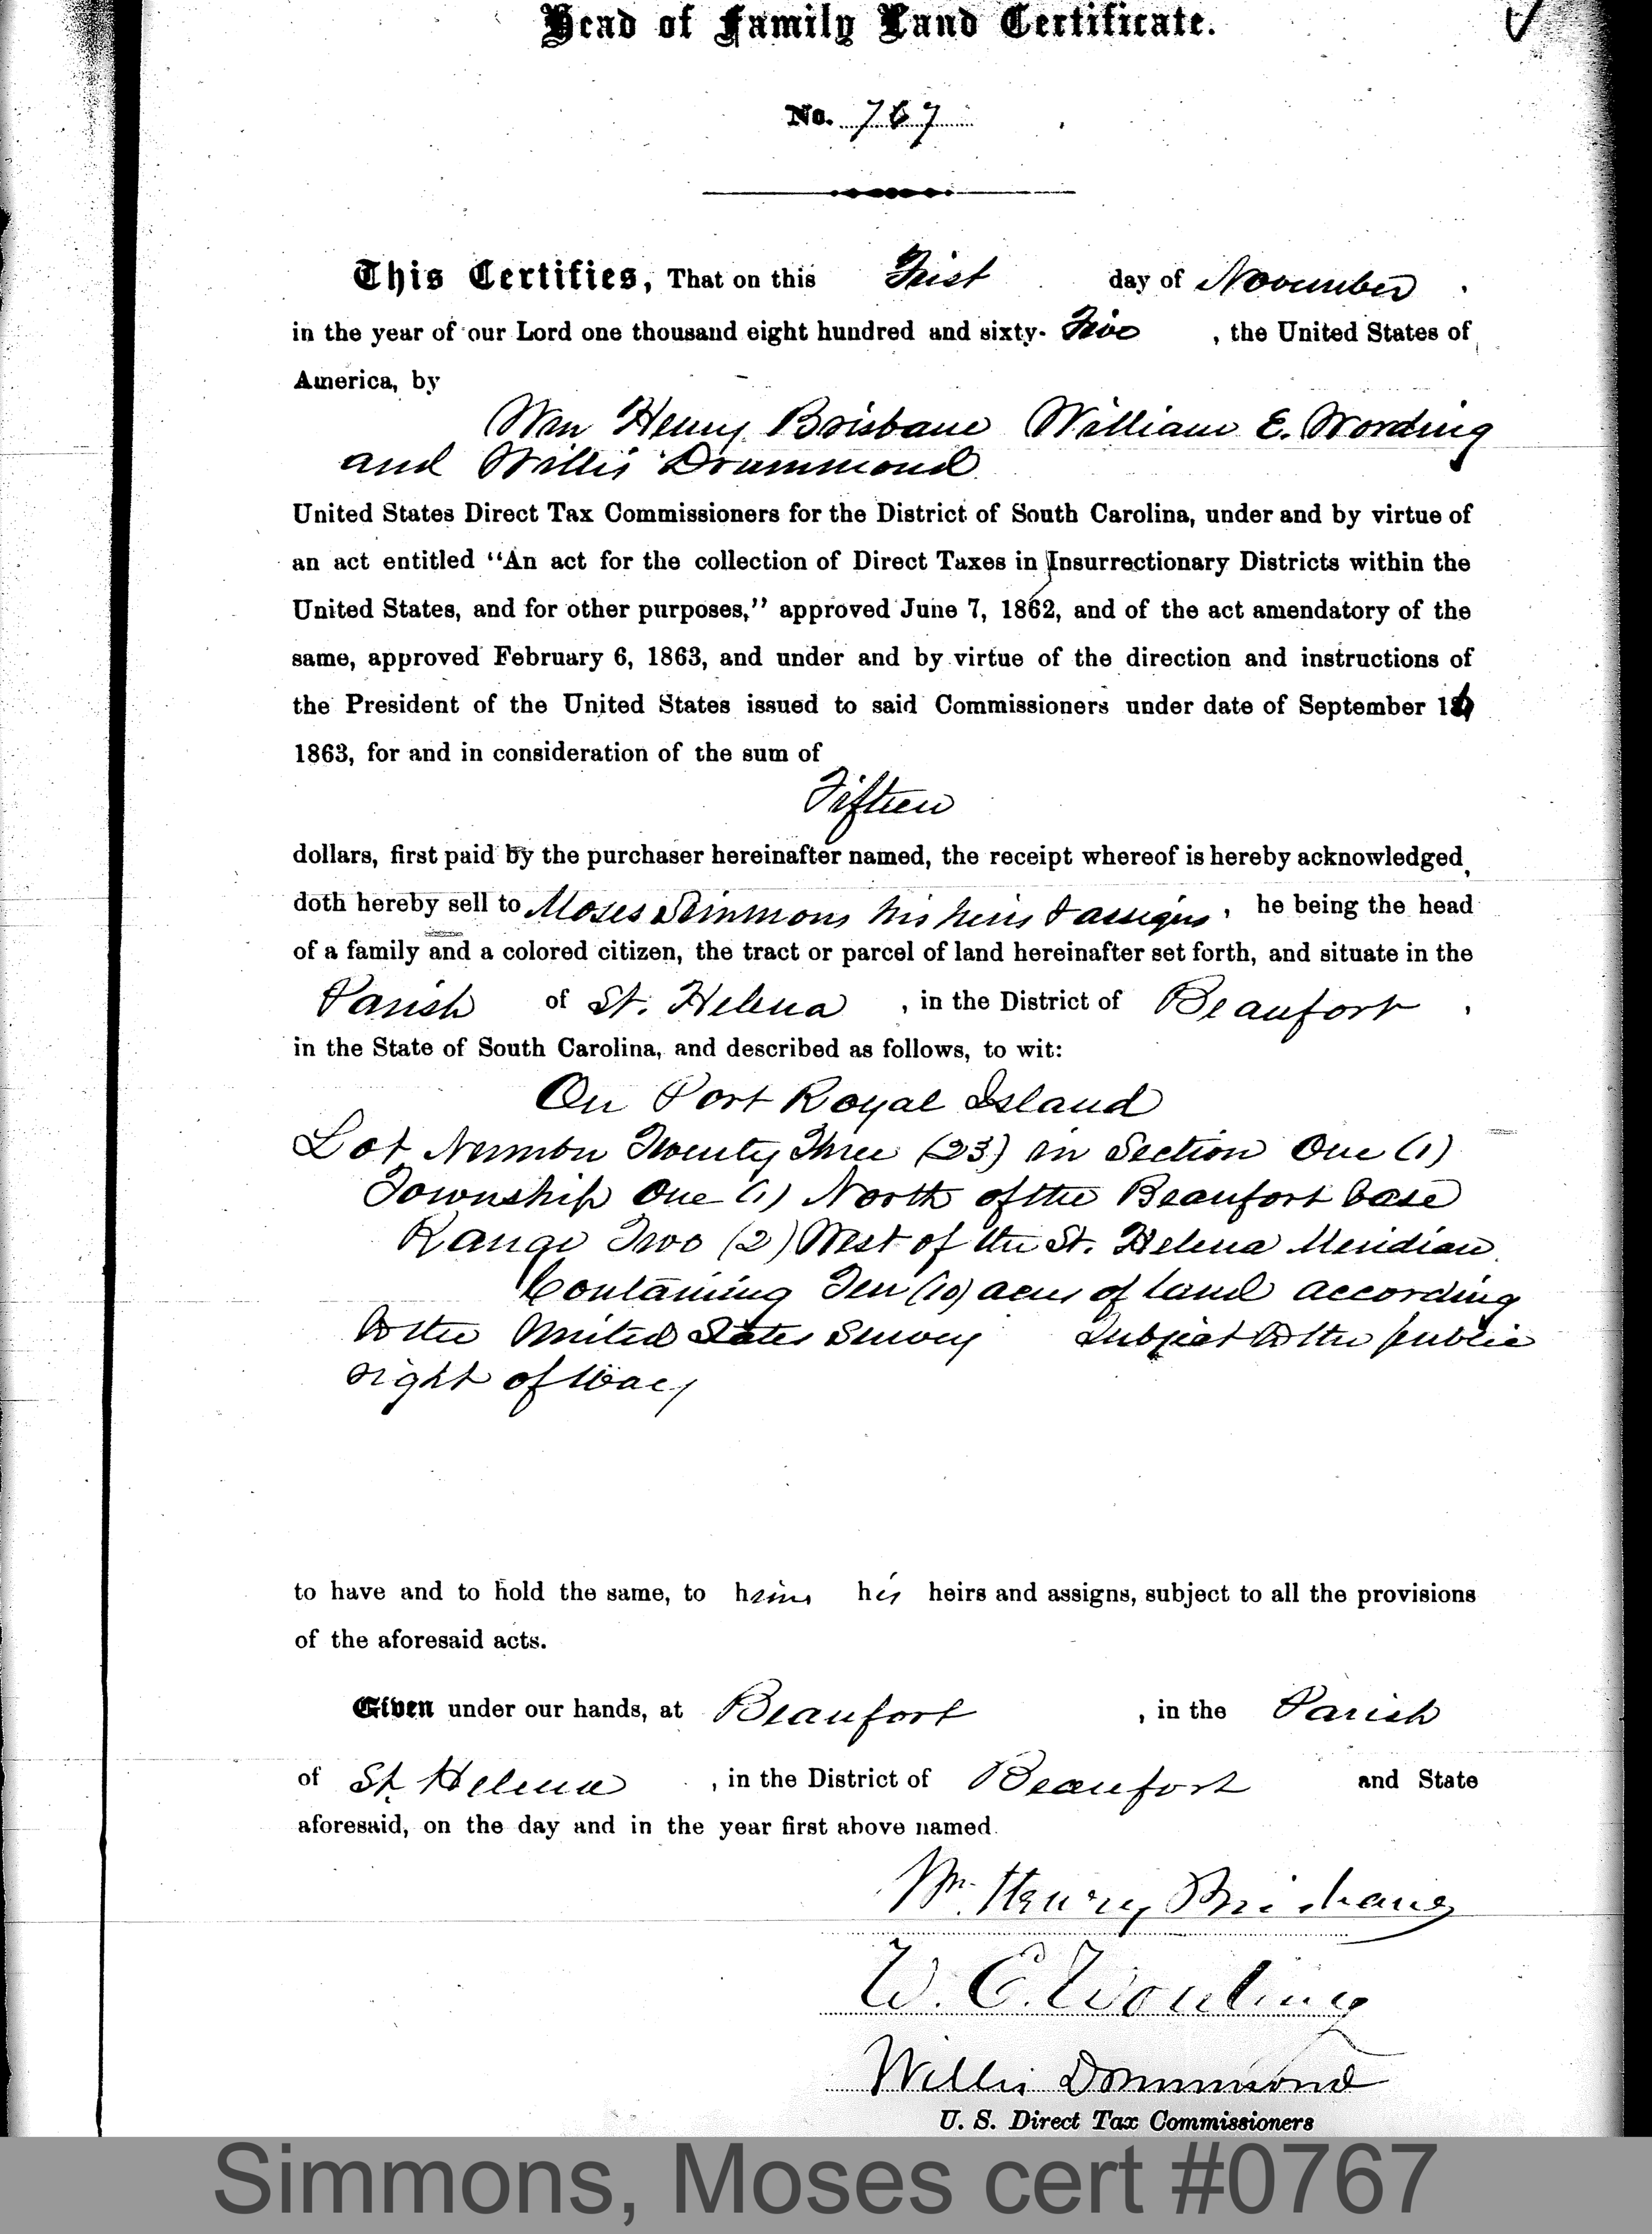 Head of Family Land Certificate.
No. 767
This Certifies, That on this First day of November
in the year of our Lord one thousand eight hundred and sixty- Five , the United States of
America, by
Wm Henry Brisbane William E. Wording
and Willis Drummond
United States Direct Tax Commissioners for the District of South Carolina, under and by virtue of
an act entitled “An act for the collection of Direct Taxes in Insurrectionary Districts within the
United States, and for other purposes,” approved June 7, 1862, and of the act amendatory of the
same, approved February 6, 1863, and under and by virtue of the direction and instructions of
the President of the United States issued to said Commissioners under date of September
1863, for and in consideration of the sum of
Fifteen
dollars, first paid by the purchaser hereinafter named, the receipt whereof is hereby acknowledged,
doth hereby sell to Moses Simmons his heirs & assigns, he being the head
of a family and a colored citizen, the tract or parcel of land hereinafter set forth, and situate in the
Parish of St. Helena , in the District of Beaufort
in the State of South Carolina, and described as follows, to wit:
On Port Royal Island
Lot Number Twenty Three (23) in Section One (1)
Township One (1) North of the Beaufort base
Range Two (2) West of the St. Helena Meridian.
Containing Ten (10) acres of land according
to the United States Survey Subject to the public
right of Way
to have and to hold the same, to him his heirs and assigns, subject to all the provisions
of the aforesaid acts.
Given under our hands, at Beaufort , in the Parish
of St. Helena , in the District of Beaufort and State
aforesaid, on the day and in the year first above named.
Wm. Henry Brisbane
W. E. Wording
Willis Drummond
U. S. Direct Tax Commissioners
Simmons, Moses cert #0767